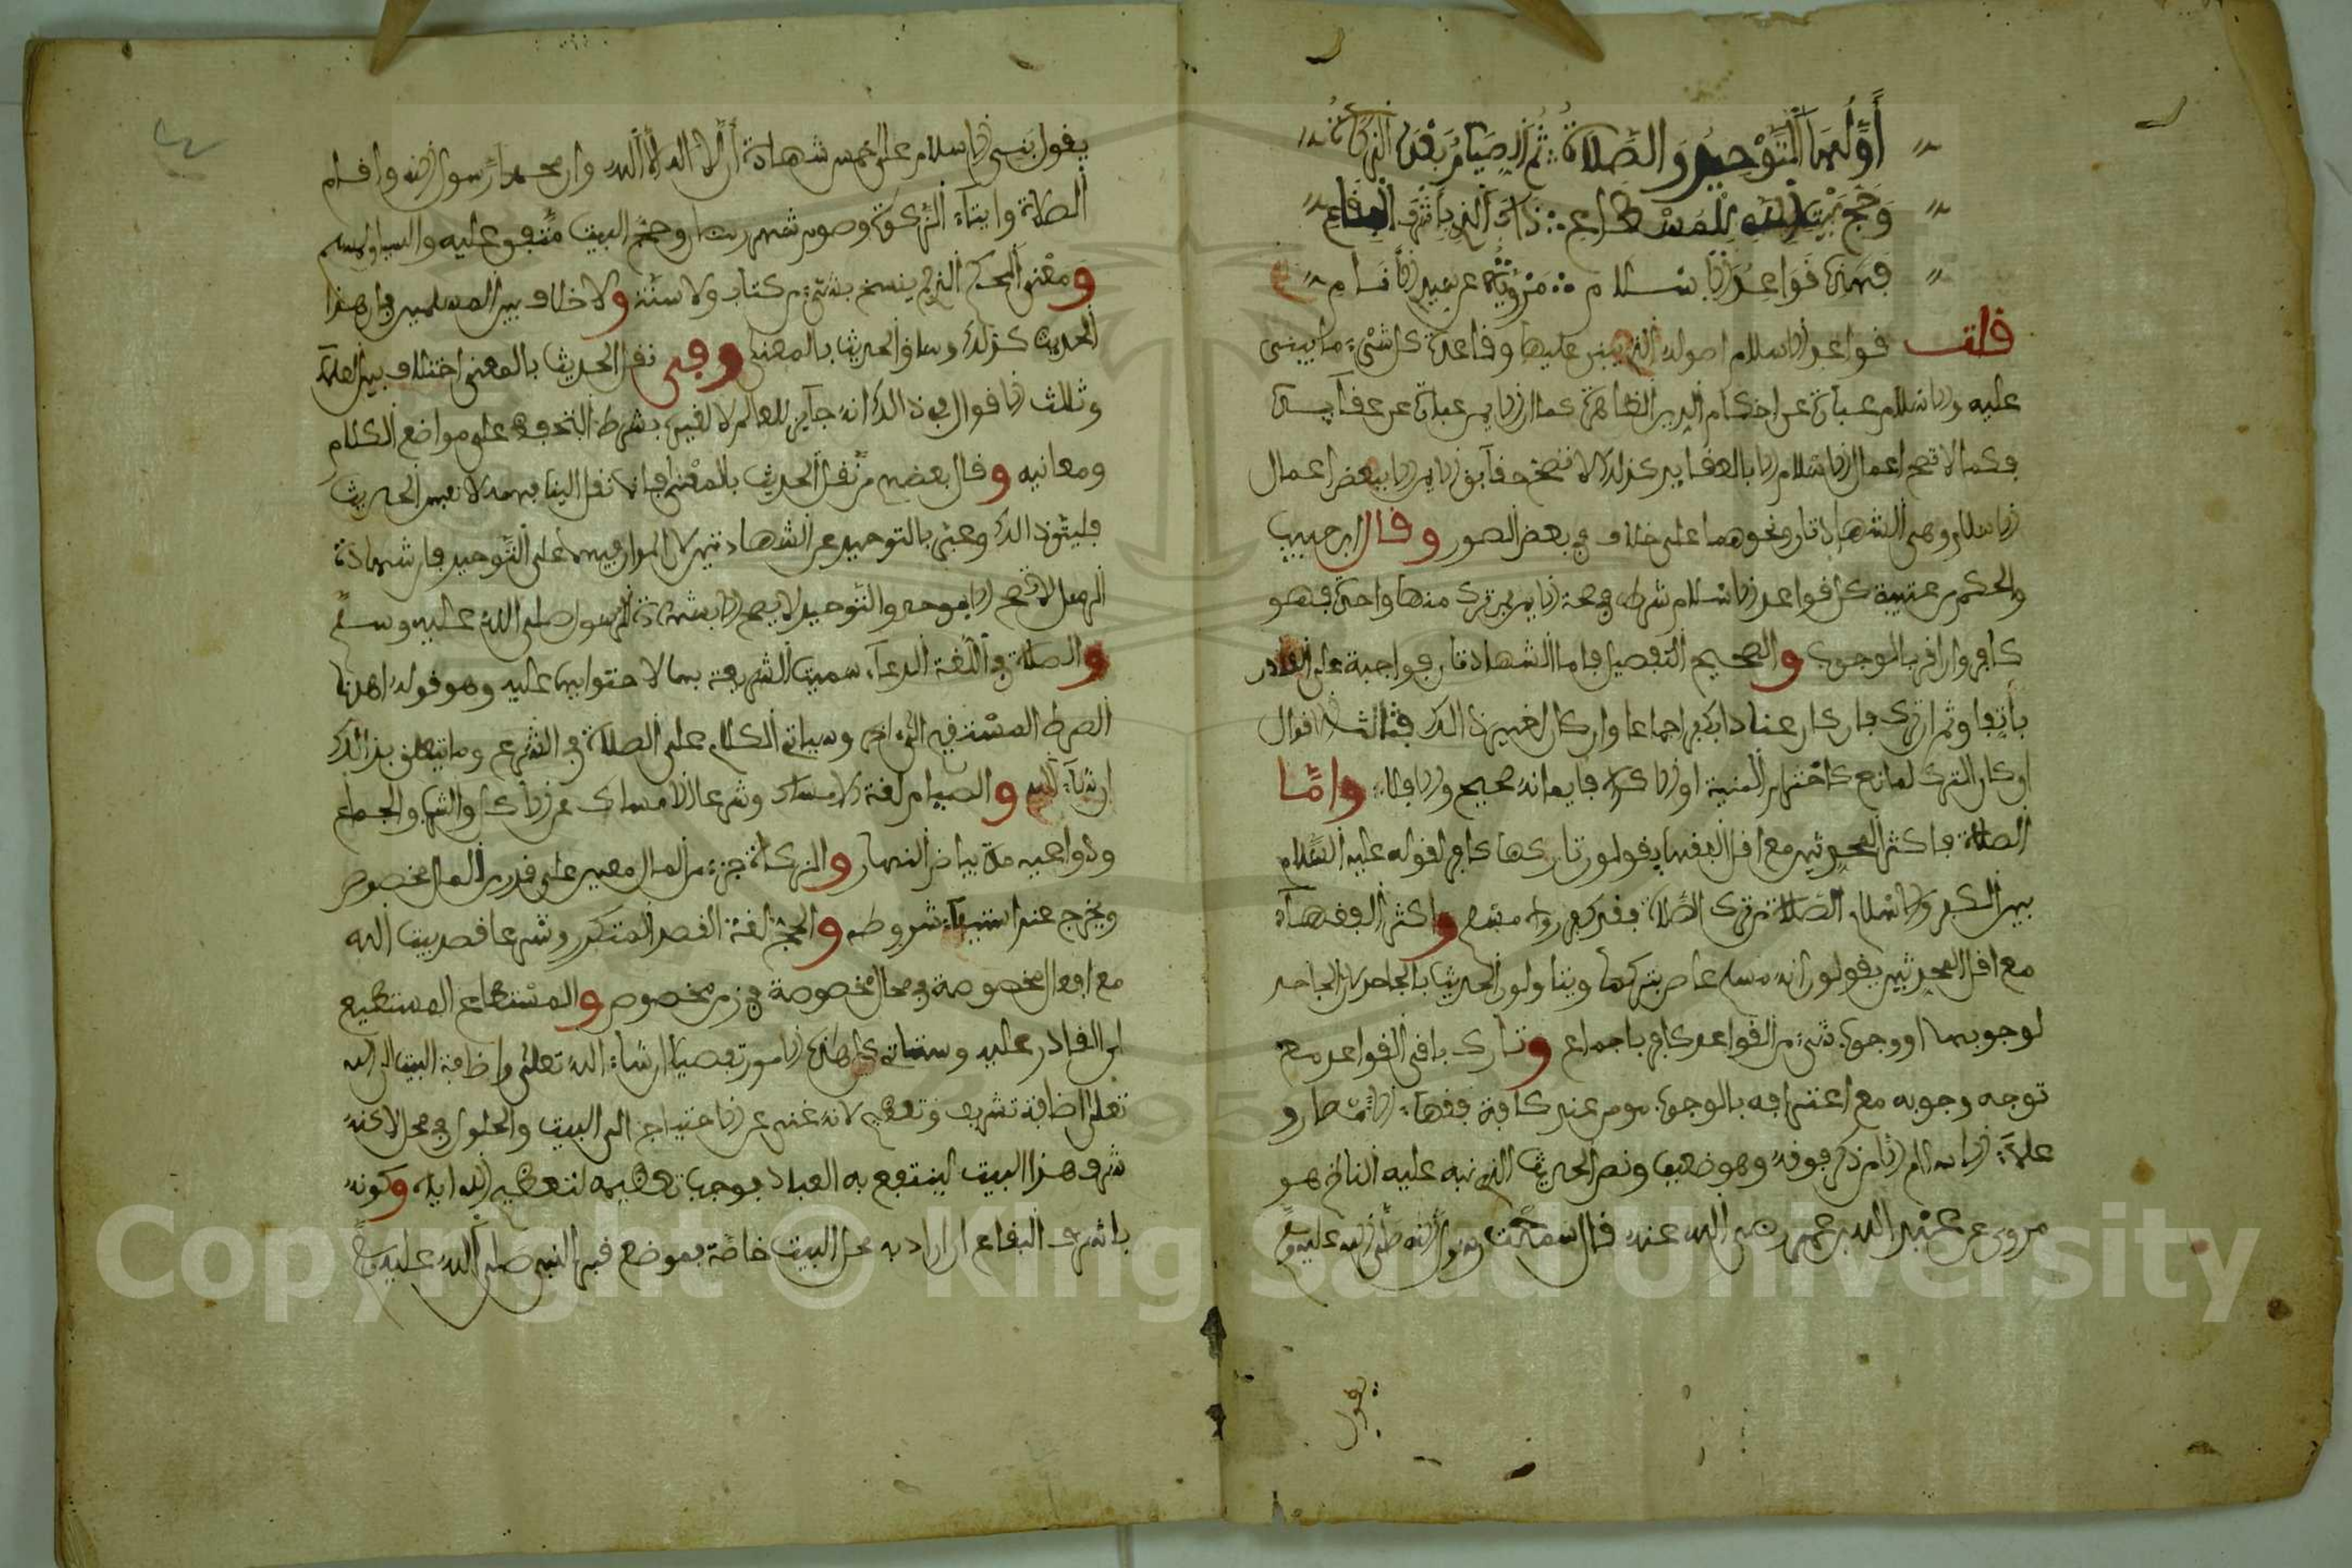 أولها التوحيد والصلاة ثم الصيام بعد الزكاة
وحج بيت الله للمستطاع ذاك الذي بأشرف البقاع
فهذه قواعد الاسلام مروية عن سيد الأنام
قلت قواعد الاسلام اصوله التي ينبني عليها وقاعدة كل شيء ما ينبني
عليه والاسلام عبارة عن احكام الدين الظاهرة كما ان الايمان عبارة عن عقائده
فكما لا تصح اعمال الاسلام الا بالعقايد كذلك لا تصح حقايق الايمان الا ببعض اعمال
الاسلام وهي الشهادتان ونحوهما على خلاف في بعض الصور وقال ابن حبيب
والحكم بن عتيبة كل قواعد الاسلام شرط في صحة الايمان من ترك منها واحدة فهو
كافر وان اقر بالوجوب والصحيح التفصيل فاما الشهادتان فواجبة على القادر
باتفاق ثم ان ترك فان كان عنادا بكفر اجماعا وان كان لغير ذالك فثالث الاقوال
ان كان الترك لمانع كاخترام المنية او الاكراه فايمانه صحيح والا فلا واما
الصلاة فاكثر المحدثين مع اقل الفقهاء يقولون تاركها كافر لقوله عليه السلام
بين الكفر والاسلام الصلاة من ترك الصلاة فقد كفر رواه مسلم واكثر الفقهاء
مع اقل المحدثين يقولون انه مسلم عاص بتركها ويتاولون الحديث بالجاحد لان الجاحد
لوجوبها او وجوب شيء من القواعد كافر باجماع وتارك باقي القواعد مع
توجه وجوبه مع اعترافه بالوجوب مومن عند كافة فقهاء الامصار و
علماء الاسلام الا من ذكر فوقه وهو ضعيف ونص الحديث الذي نبه عليه الناظم هو
مروي عن عبد الله بن عمر رضي الله عنه قال سمعت رسول الله صلى الله عليه وسلم
يقول
يقول بني الاسلام على خمس شهادة أن لا اله الا الله وان محمدا رسول الله واقام
الصلاة وايتاء الزكوة وصوم شهر رمضان وحج البيت متفق عليه
ومعنى المحكم الذي لم ينسخ بشيء من كتاب ولا سنة ولا خلاف بين المسلمين في ان هذا
الحديث كذلك وساق الحديث بالمعنى وفي نقل الحديث بالمعنى اختلاف بين العلماء
وثالث الاقوال في ذالك انه جايز للعالم لا لغيره بشرط التحفظ على مواضع الكلام
ومعانيه وقال بعضهم من نقل الحديث بالمعنى فانما نقل الينا فهمه لا نفس الحديث
فليتق ذالك وعبر بالتوحيد عن الشهادتين لان المدار فيهما على التوحيد فان شهادة
الرسل لا تصح الا بموحد والتوحيد لا يصح الا بشهادة الرسول صلى الله عليه وسلم
والصلاة في اللغة الدعاء سميت الشرعية بها لاحتوايها عليه وهو قوله اهدنا
الصرط المستقيم الى اخره وسياتي الكلام على الصلاة في الشرع وما يتعلق بذالك
ان شاء الله والصيام لغة الامساك وشرعا الامساك عن الأكل والشرب والجماع
ودواعيه مدة بياض النهار والزكاة جزء من المال معين على قدر من المال مخصوص
ويخرج عند استيفاء شروطه والحج لغة القصد المتكرر وشرعا قصد بيت الله
مع افعال مخصوصة في محال مخصوصة في زمن مخصوص والمستطاع المستطيع
اي القادر عليه وستاتي كل هذه الامور تفصيلا ان شاء الله تعلى واضافة البيت الى الله
تعلى اضافة تشريف وتعظيم لانه غني عن الاحتياج الى البيت والحلول في محل لاكنه
شرف هذا البيت لينتفع به العباد فوجب تعظيمه لتعظيم الله اياه وكونه
باشرف البقاع ان اراد به محل البيت خاصة فموضع قبر النبي صلى الله عليه وسلم
Copyright © King Saud University